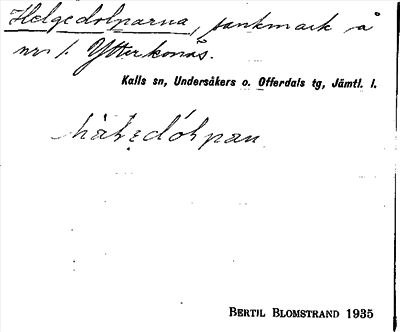 Helgedolparna, sankmark å
nr 1 Ytterkonäs.
Kalls sn, Undersåkers o. Offerdals tg, Jämtl. l.
BERTIL BLOMSTRAND 1935